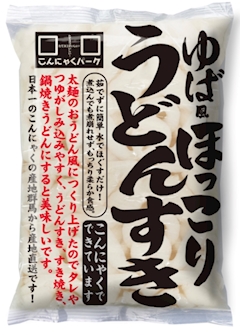 こんにゃくパーク
ゆば風
ほっこり
うどんすき
茹でずに簡単 水でほぐすだけ!
煮込んでも煮崩れせずもっちり柔らか食感。
太麺のおうどん風につくり上げたのでタレや
つゆがしみ込みやすく、うどんすき、すき焼き、
鍋焼きうどんにすると美味しいです。
日本一のこんにゃくの産地群馬から産地直送です!
こんにゃくで
できています